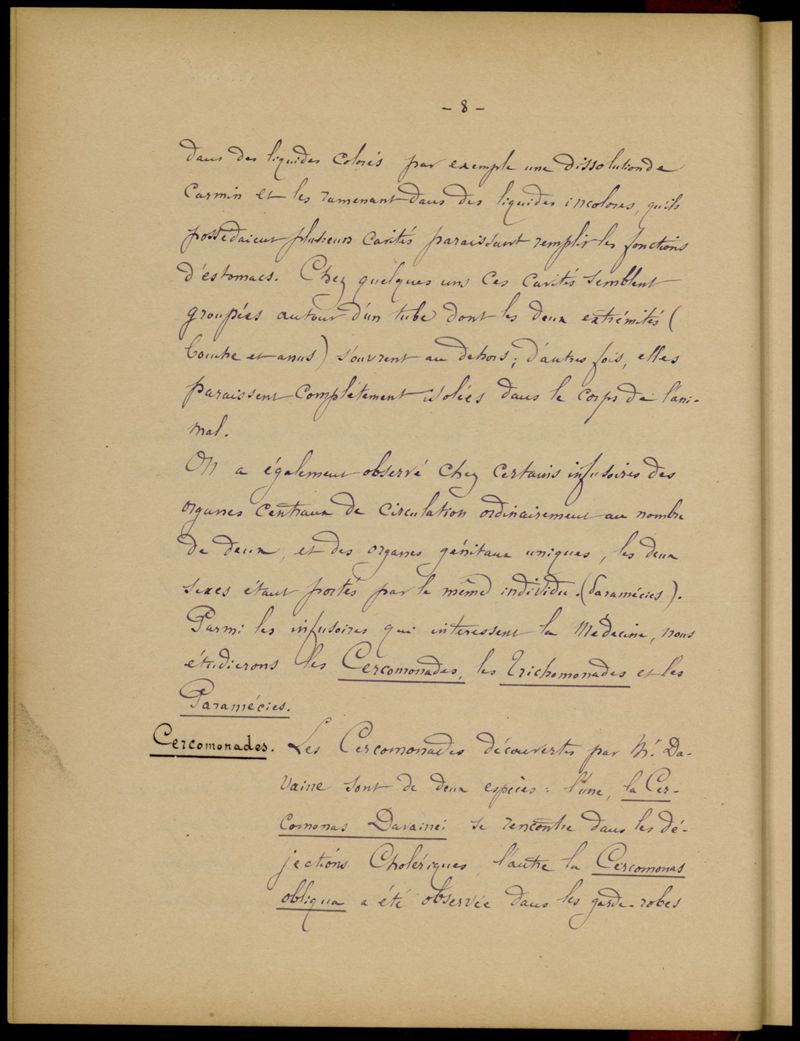 - 8 -
dans des liquides colorés par exemple une dissolution de
Carmin et les ramenant dans des liquides incolores, qu'ils
possédaient plusieurs cavités paraissant remplir les fonctions
d'éstomacs. Chez quélques uns ces cavités semblent
groupées autour d'un tube dont les deux extrémités (
bouche et anus) s'ouvrent au dehors; d'autres fois, elles
paraissent complétement isolées dans le corps de l'ani-
mal.
On a également observé chez certains infusoires des
organes centraux de circulation ordinairement au nombre
de deux, et des organes génitaux uniques, les deux
sexes étant portés par le même individu. (Paramécies).
Parmi les infusoires qui intéressent la Médecine, nous
étudierons les Cercomonades, les Trichomonades et les
Paramécies.
Cercomonades. Les Cercomonades découvertes par Mr Da-
vaine sont de deux espèces: l'une, la Cer-
comonas Davainei se rencontre dans les dé-
jections Cholériques, l'autre la Cercomonas
obliqua a été observée dans les garde-robes